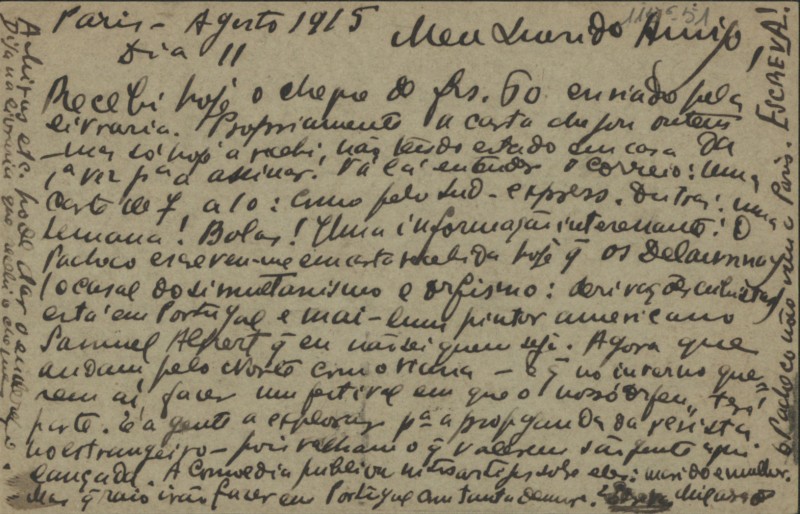 Paris - Agosto 1915
Dia 11
Meu Querido Amigo!
Recebi hoje o cheque de frs. 60 enviado pela
livraria. Propriamente a carta chegou ontem
- mas só hoje a recebi, não tendo estado em casa da
1ª vez pª a assinar. Vá lá entender o correio: uma
carta de 7 a 10: como pelo sud-express. Outras: uma
semana! Bolas! Uma informação interessante: O
Pacheco escreveu-me em carta recebida hoje q os Delaunnay
(o casal do simultanismo e orfismo: derivações cubistas)
está em Portugal e mai-lum pintor americano
Samuel q eu não sei quem seja. Agora que
andam pelo Norte com o Vianna - e q no inverno que-
rem aí fazer um festival em que o nosso "Orfeu" terá
parte. É a gente a explorar pª a propaganda da revista
no estrangeiro - pois valham o q valerem são gente aqui
lançada. A Comœdia publica artigos sobre eles: marido e mulher.
Mas q raio irão fazer em Portugal com tanta
o Pacheco não vem a Paris. ESCREVA!
A Mirus etc. pode dar o endereço.
Diga na livraria que recebi o cheque